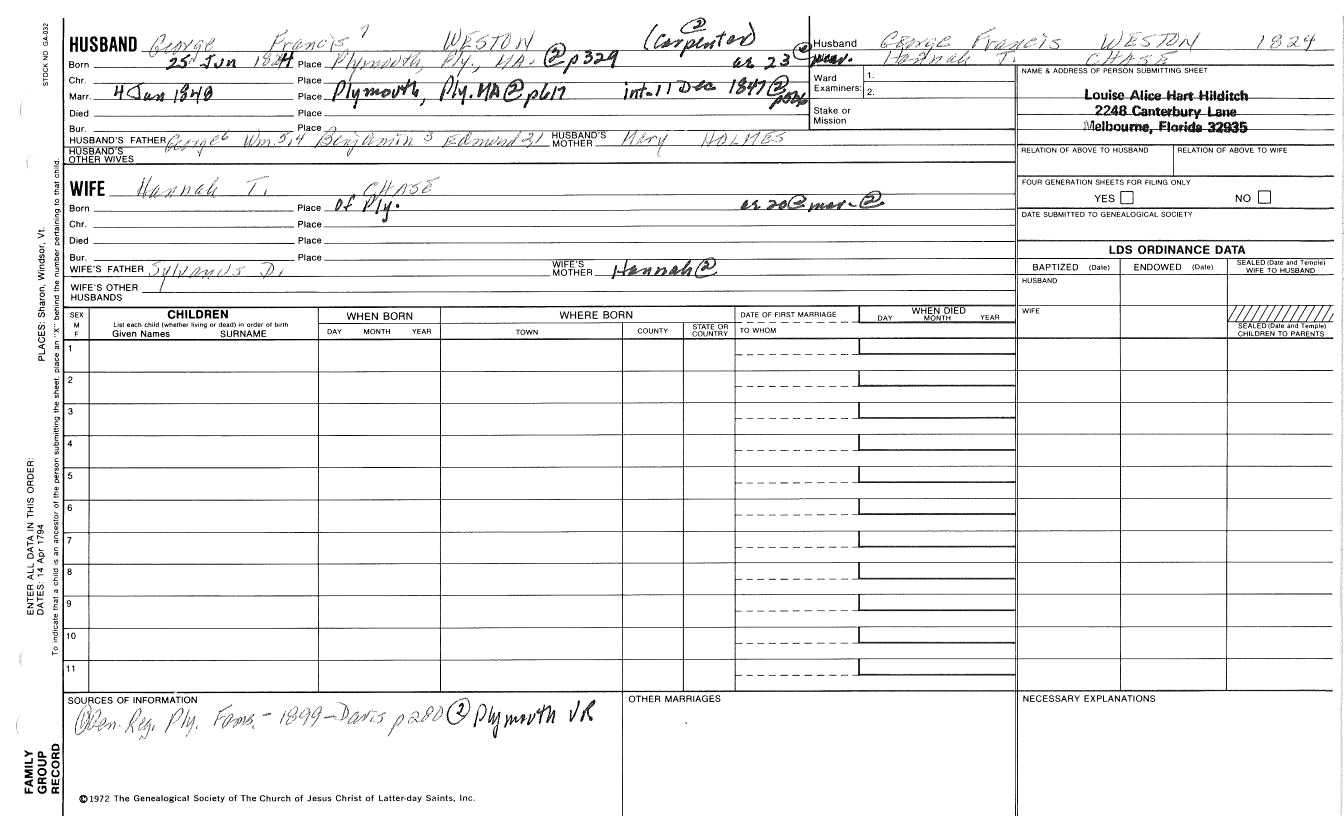 STOCK NO. GA-032
HUSBAND George Francis 7 WESTON (Carpenter) ②
Husband George Francis WESTON 1824
Hannah T. CHASE
Born 25 Jun 1824 Place Plymouth, Ply., MA. ② p329 ae 23 @ mar. ②
Chr. Place
Marr. 4 Jan 1848 Place Plymouth, Ply. MA ② p617 int. 11 Dec 1847 ②
Died Place
Bur. Place
Ward Examiners: 1.
2.
Stake or Mission
NAME & ADDRESS OF PERSON SUBMITTING SHEET
Louise Alice Hart Hilditch
2248 Canterbury Lane
Melbourne, Florida 32935
HUSBAND'S FATHER George6 Wm.5,4 Benjamin 3 Edmund 2,1 HUSBAND'S MOTHER Mary HOLMES
HUSBAND'S OTHER WIVES
RELATION OF ABOVE TO HUSBAND RELATION OF ABOVE TO WIFE
WIFE Hannah T. CHASE
Born Place of Ply. ae 20 @ mar. ②
Chr. Place
Died Place
Bur. Place
WIFE'S FATHER Sylvanus D. WIFE'S MOTHER Hannah ②
WIFE'S OTHER HUSBANDS
FOUR GENERATION SHEETS FOR FILING ONLY
YES NO
DATE SUBMITTED TO GENEALOGICAL SOCIETY
LDS ORDINANCE DATA
BAPTIZED (Date) ENDOWED (Date) SEALED (Date and Temple) WIFE TO HUSBAND
HUSBAND
WIFE
SEALED (Date and Temple) CHILDREN TO PARENTS
SEX M F
CHILDREN
List each child (whether living or dead) in order of birth
Given Names SURNAME
WHEN BORN
DAY MONTH YEAR
WHERE BORN
TOWN COUNTY STATE OR COUNTRY
DATE OF FIRST MARRIAGE
TO WHOM
WHEN DIED
DAY MONTH YEAR
1
2
3
4
5
6
7
8
9
10
11
SOURCES OF INFORMATION
① Gen. Reg. Ply. Fams. - 1899 - Davis p280 ② Plymouth VR
OTHER MARRIAGES
NECESSARY EXPLANATIONS
©1972 The Genealogical Society of The Church of Jesus Christ of Latter-day Saints, Inc.
FAMILY GROUP RECORD
ENTER ALL DATA IN THIS ORDER:
DATES: 14 Apr 1794 PLACES: Sharon, Windsor, Vt.
To indicate that a child is an ancestor of the person submitting the sheet, place an "X" behind the number pertaining to that child.